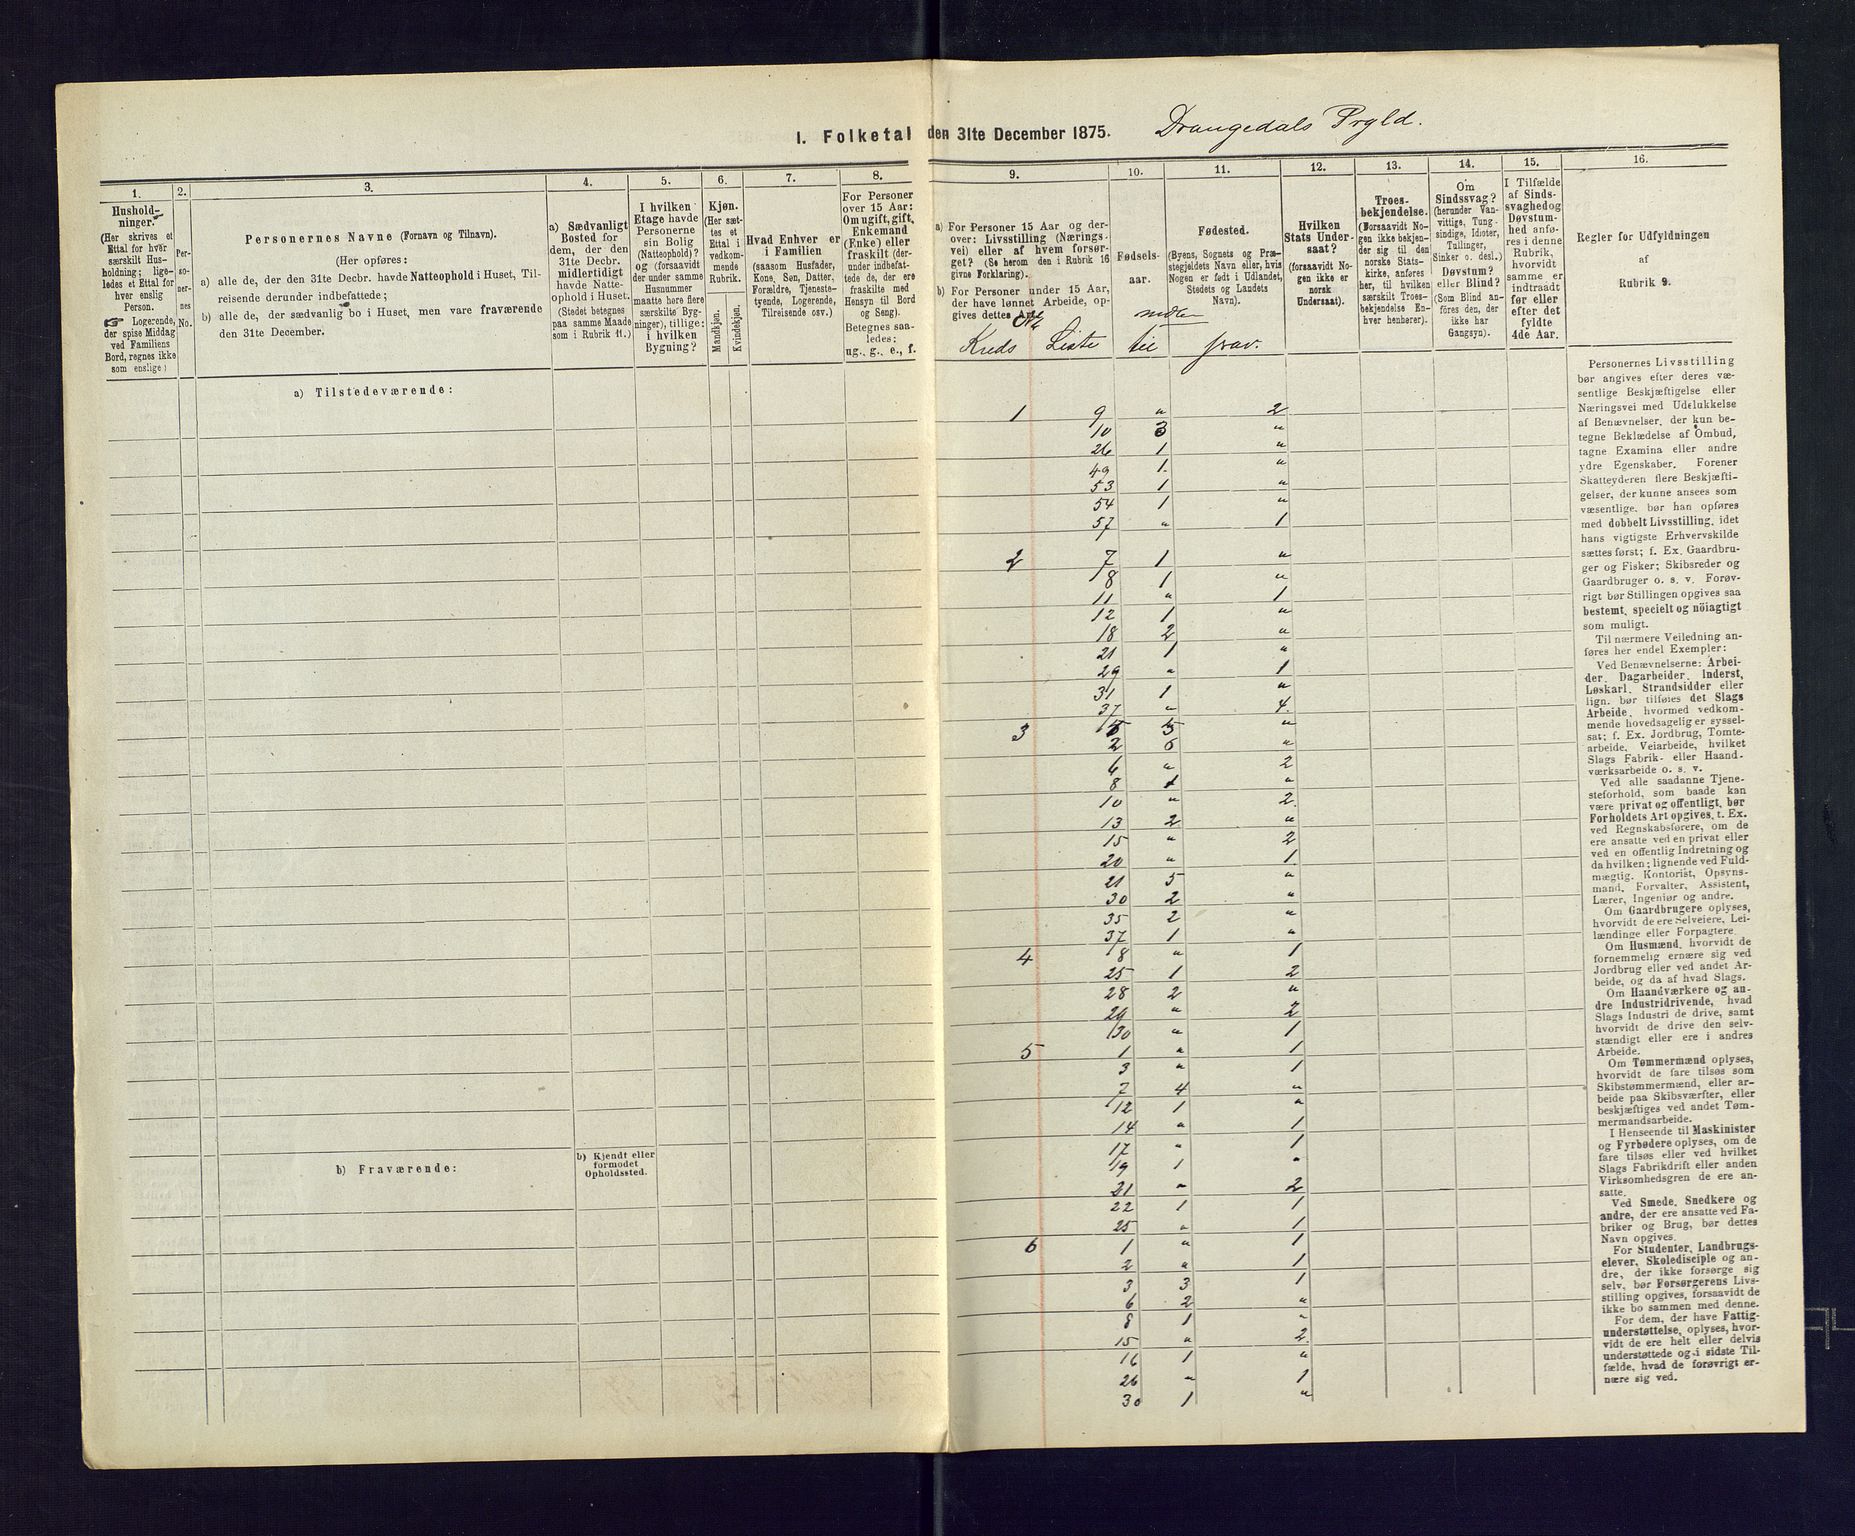 I. Folketal den 31te December 1875. Drangedals Prgld.
1.
2.
3.
4.
5.
6.
7.
8.
9.
10.
11.
12.
13.
14.
15.
16.
Hushold-
ninger.
(Her skrives et
Ettal for hver
særskilt Hus-
holdning; lige-
ledes et Ettal for
hver enslig
Person.
☞ Logerende,
der spise Middag
ved Familiens
Bord, regnes ikke
som enslige)
Per-
so-
ner-
nes
No.
Personernes Navne (Fornavn og Tilnavn).
(Her opføres:
a) alle de, der den 31te Decbr. havde Natteophold i Huset, Til-
reisende derunder indbefattede;
b) alle de, der sædvanlig bo i Huset, men vare fraværende
den 31te December.
a) Sædvanligt
Bosted for
dem, der den
31te Decbr.
midlertidigt
havde Natte-
ophold i Huset.
(Stedet betegnes
paa samme Maade
som i Rubrik 11.)
I hvilken
Etage havde
Personerne
sin Bolig
(Natteophold)?
og (forsaavidt
der under samme
Husnummer
maatte høre flere
særskilte Byg-
ninger), tillige:
i hvilken
Bygning?
Kjøn.
(Her sæt-
tes et
Ettal i
vedkom-
mende
Rubrik.
Mandkjøn.
Kvindekjøn.
Hvad Enhver er
i Familien
(saasom Husfader,
Kone, Søn, Datter,
Forældre, Tjeneste-
tyende, Logerende,
Tilreisende osv.)
For Personer
over 15 Aar:
Om ugift, gift,
Enkemand
(Enke) eller
fraskilt (der-
under indbefat-
tede de, der ere
fraskilte med
Hensyn til Bord
og Seng).
Betegnes saa-
ledes:
ug., g., e., f.
a) For Personer 15 Aar og der-
over: Livsstilling (Nærings-
vei) eller af hvem forsør-
get? (Se herom den i Rubrik 16
givne Forklaring).
b) For Personer under 15 Aar,
der have lønnet Arbeide, op-
gives dettes Art.
Fødsels-
aar.
Fødested.
(Byens, Sognets og Præ-
stegjeldets Navn eller, hvis
Nogen er født i Udlandet,
Stedets og Landets
Navn).
Hvilken
Stats Under-
saat?
(forsaavidt No-
gen ikke er
norsk
Undersaat).
Troes-
bekjendelse.
(Forsaavidt No-
gen ikke bekjen-
der sig til den
norske Stats-
kirke, anføres
her, til hvilken
særskilt Troes-
bekjendelse En-
hver henhører).
Om
Sindssvag?
(herunder Van-
vittige, Tung-
sindige, Idioter,
Tullinger,
Sinker o. desl.)
Døvstum?
eller Blind?
(Som Blind an-
føres den, der
ikke har
Gangsyn).
I Tilfælde
af Sinds-
svaghed og
Døvstum-
hed anfø-
res i denne
Rubrik,
hvorvidt
samme er
indtraadt
før eller
efter det
fyldte
4de Aar.
Regler for Udfyldningen
af
Rubrik 9.
No midler
Kreds Liste til frav.
a) Tilstedeværende:
1 9 " 2
10 3 "
26 1 "
49 1. "
53 1 "
54 1 "
57 " 1
2 7 1 "
8 1 "
11 " 1
12 1 "
18 2 "
21 1 "
29 " 1
31 1 "
37 " 4.
3 5 "
2 6 "
6 " 2
8 1 "
10 " 2.
13 2 "
15 " 2
20 " 1.
21 5 "
30 2 "
35 2 "
37 1 "
4 8 " 1
25 1 2
28 2 "
29 " 2
30 " 1
5 1 " 1
3 " 1
7 4 "
12 1 "
14 " 1
17 " 1
19 1 "
21 " 2
22 1 1
25 " 1
6 1 " 1
2 " 1
3 3 1
6 2 "
8 1 "
15 " 2.
16 1 "
26 " 1
30 1 "
b) Fraværende:
b) Kjendt eller
formodet
Opholdssted.
Personernes Livsstilling
bør angives efter deres væ-
sentlige Beskjæftigelse eller
Næringsvei med Udelukkelse
af Benævnelser, der kun be-
tegne Beklædelse af Ombud,
tagne Examina eller andre
ydre Egenskaber. Forener
Skatteyderen flere Beskjæfti-
gelser, der kunne ansees som
væsentlige, bør han opføres
med dobbelt Livsstilling, idet
hans vigtigste Erhvervskilde
sættes først; f. Ex. Gaardbru-
ger og Fisker; Skibsreder og
Gaardbruger o. s. v. Forøv-
rigt bør Stillingen opgives saa
bestemt, specielt og nöiagtigt
som muligt.
Til nærmere Veiledning an-
føres her endel Exempler:
Ved Benævnelserne: Arbei-
der, Dagarbeider, Inderst,
Løskarl, Strandsidder eller
lign. bør tilføies det Slags
Arbeide, hvormed vedkom-
mende hovedsagelig er syssel-
sat; f. Ex. Jordbrug, Tomte-
arbeide, Veiarbeide, hvilket
Slags Fabrik- eller Haand-
værksarbeide o. s. v.
Ved alle saadanne Tjene-
steforhold, som baade kan
være privat og offentligt, bør
Forholdets Art opgives, t. Ex.
ved Regnskabsførere, om de
ere ansatte ved en privat eller
ved en offentlig Indretning og
da hvilken; lignende ved Fuld-
mægtig, Kontorist, Opsyns-
mand, Forvalter, Assistent,
Lærer, Ingeniør og andre.
Om Gaardbrugere oplyses,
hvorvidt de ere Selveiere, Lei-
lændinge eller Forpagtere.
Om Husmænd, hvorvidt de
fornemmelig ernære sig ved
Jordbrug eller ved andet Ar-
beide, og da af hvad Slags.
Om Haandværkere og an-
dre Industridrivende, hvad
Slags Industri de drive, samt
hvorvidt de drive den selv-
stændigt eller ere i andres
Arbeide.
Om Tømmermænd oplyses,
hvorvidt de fare tilsøs som
Skibstømmermænd, eller ar-
beide paa Skibsværfter, eller
beskjæftiges ved andet Tøm-
mermandsarbeide.
I Henseende til Maskinister
og Fyrbødere oplyses, om de
fare tilsøs eller ved hvilket
Slags Fabrikdrift eller anden
Virksomhedsgren de ere an-
satte.
Ved Smede, Snedkere og
andre, der ere ansatte ved Fa-
briker og Brug, bør dettes
Navn opgives.
For Studenter, Landbrugs-
elever, Skoledisciple og an-
dre, der ikke forsørge sig
selv, bør Forsørgerens Livs-
stilling opgives, forsaavidt de
ikke bo sammen med denne.
For dem, der have Fattig-
understøttelse, oplyses, hvor-
vidt de ere helt eller delvis
understøttede og i sidste Til-
fælde, hvad de forøvrigt er-
nære sig ved.